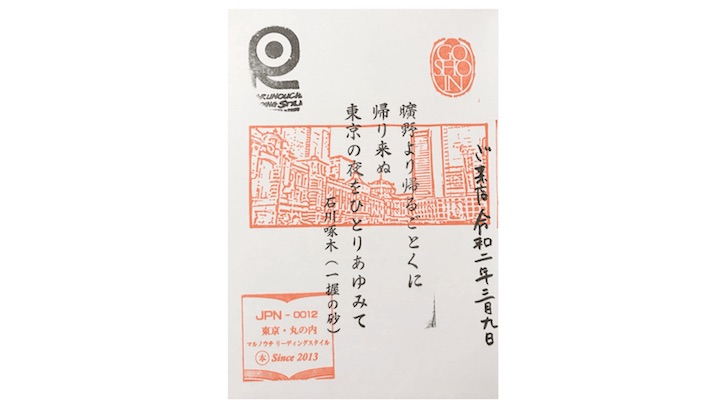 GO
SHO
IN
ご来店 令和二年三月九日
曠野より帰るごとくに
帰り来ぬ
東京の夜をひとりあゆみて
石川啄木(一握の砂)
JPN-0012
東京・丸の内
マルノウチ リーディングスタイル
本 Since 2013